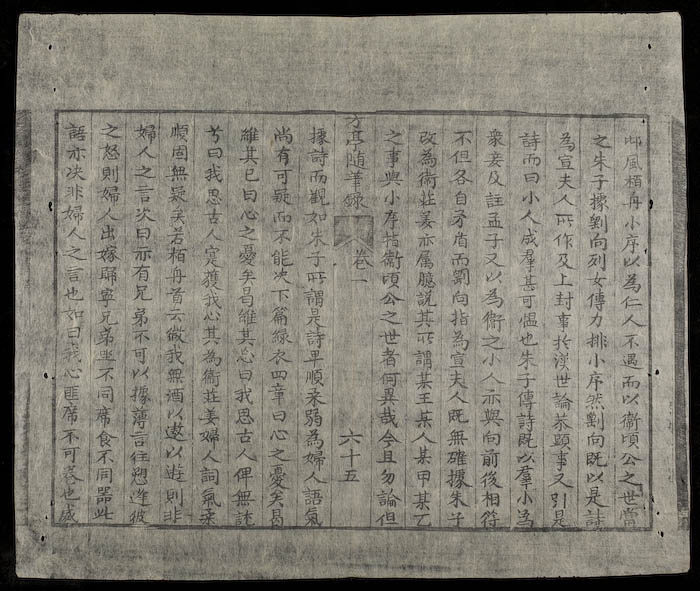 邶風柏舟小序以為仁人不遇而以衞頃公之世當
之朱子據劉向列女傳力排小序然劉向既以是詩
為宣夫人所作及上封事於漢世論恭顯事又引是
詩而曰小人成羣甚可慍也朱子傳詩既以羣小為
衆妾及註孟子又以為衞之小人亦與向前後相符
不但各自矛盾而劉向指為宣夫人既無確據朱子
改為衞莊姜亦属臆說其所謂某王某人某甲某乙
之事與小序指衞頃公之世者何異哉今且勿論但
方亭随筆錄 卷一 六十五
據詩而觀如朱子所謂是詩卑順柔弱為婦人語氣
尚有可疑而不能决下篇緑衣四章曰心之憂矣曷
維其已曰心之憂矣曷維其忘曰我思古人俾無訧
兮曰我思古人寔獲我心其為衞莊姜婦人詞氣柔
順固無疑矣若柏舟首云微我無酒以遨以遊則非
婦人之言次曰亦有兄弟不可以據薄言往愬逢彼
之怒則婦人出嫁歸寧兄弟坐不同席食不同器此
語亦决非婦人之言也如曰我心匪席不可卷也威